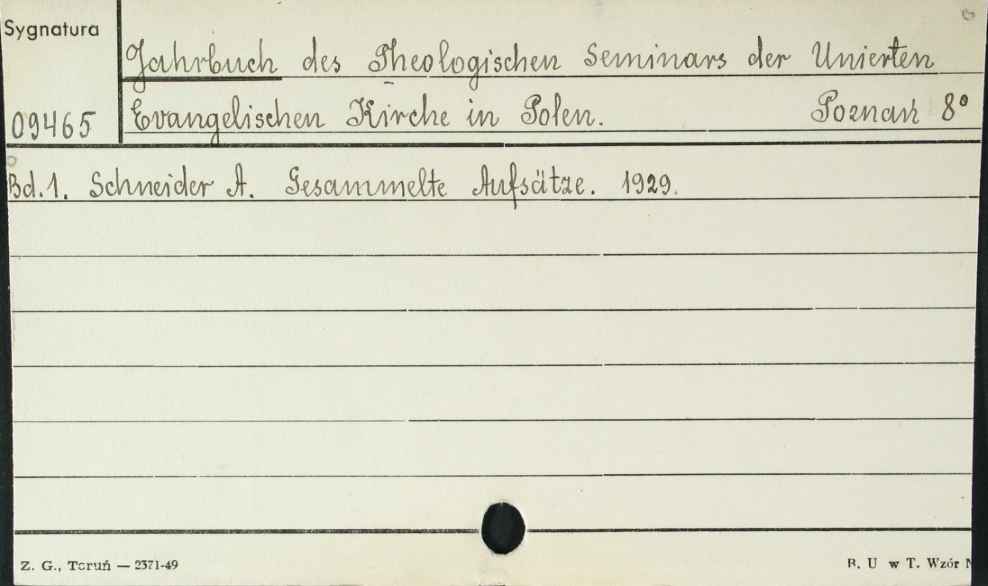 Sygnatura
Jahrbuch des Theologischen Seminars der Unierten
09465
Evangelischen Kirche in Polen. Poznań 8°
Bd. 1. Schneider A. Gesammelte Aufsätze. 1929.
Z. G., Toruń — 2371-49
B. U w T. Wzór